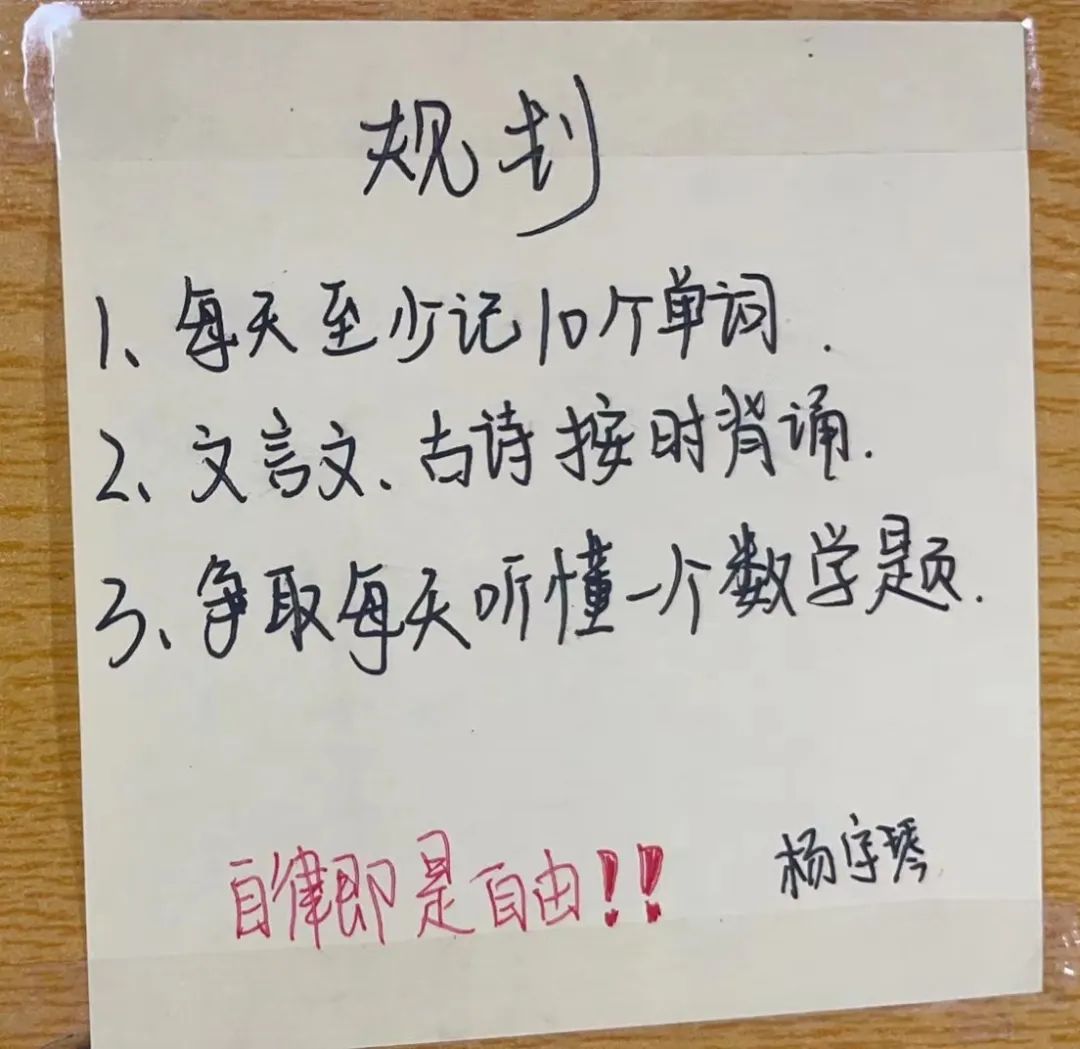 规划
1、每天至少记10个单词.
2、文言文、古诗按时背诵.
3、争取每天听懂一个数学题.
自律即是自由!! 杨宇琴